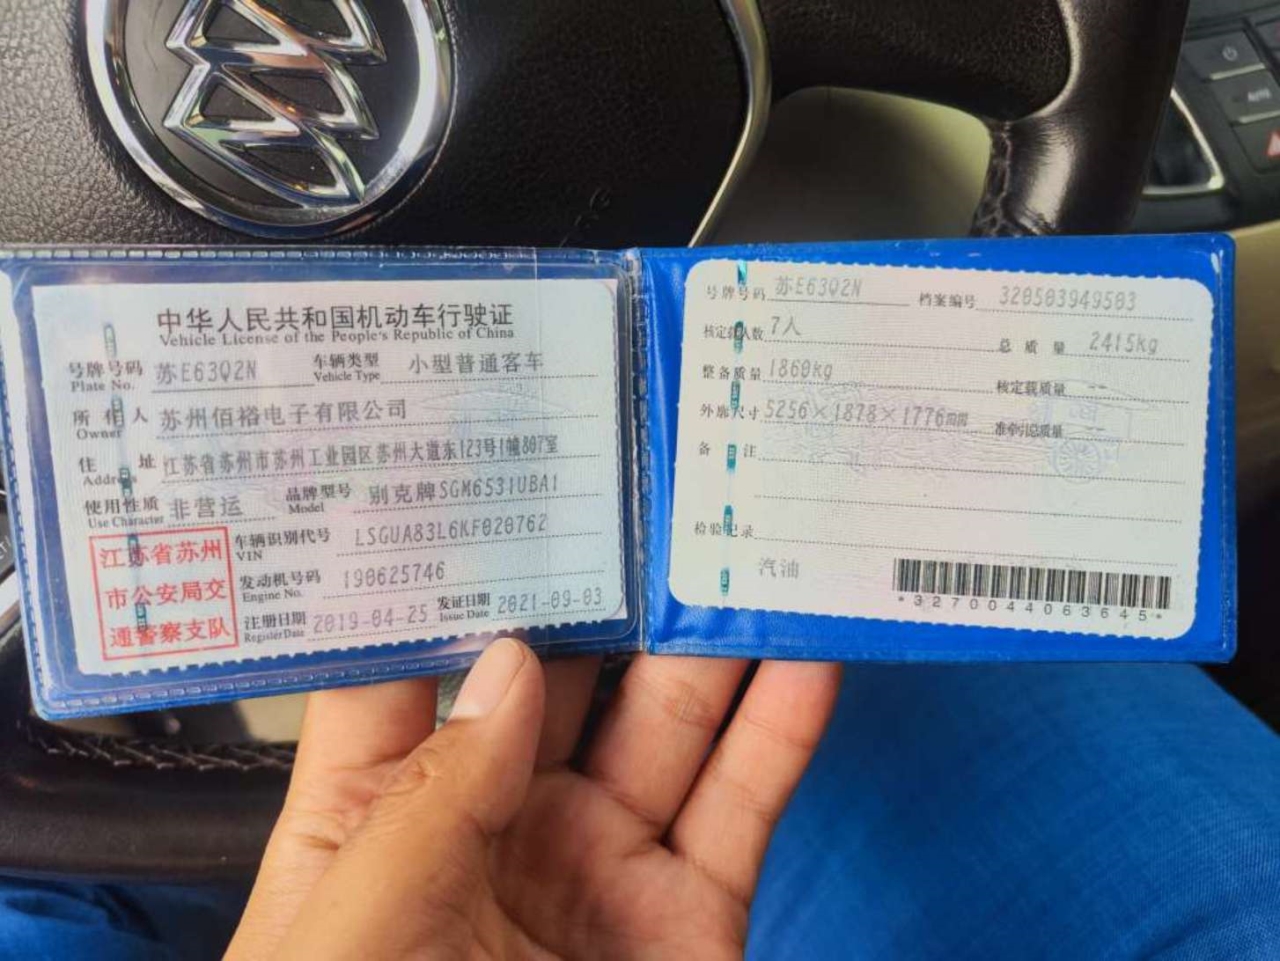 中华人民共和国机动车行驶证
Vehicle License of the People's Republic of China
号牌号码 苏E63Q2N 车辆类型 小型普通客车
Plate No. Vehicle Type
所有人 苏州佰裕电子有限公司
Owner
住址 江苏省苏州市苏州工业园区苏州大道东123号1幢807室
Address
使用性质 非营运 品牌型号 别克牌SGM6531UBA1
Use Character Model
江苏省苏州
市公安局交
通警察支队
车辆识别代号 LSGUA83L6KF020762
VIN
发动机号码 190625746
Engine No.
注册日期 2019-04-25 发证日期 2021-09-03
Register Date Issue Date
号牌号码 苏E63Q2N 档案编号 320503949503
核定载人数 7人 总质量 2415kg
整备质量 1860kg 核定载质量 --
外廓尺寸 5256×1878×1776mm 准牵引总质量 --
备注
检验记录
汽油
*3270044063645*
AUTO